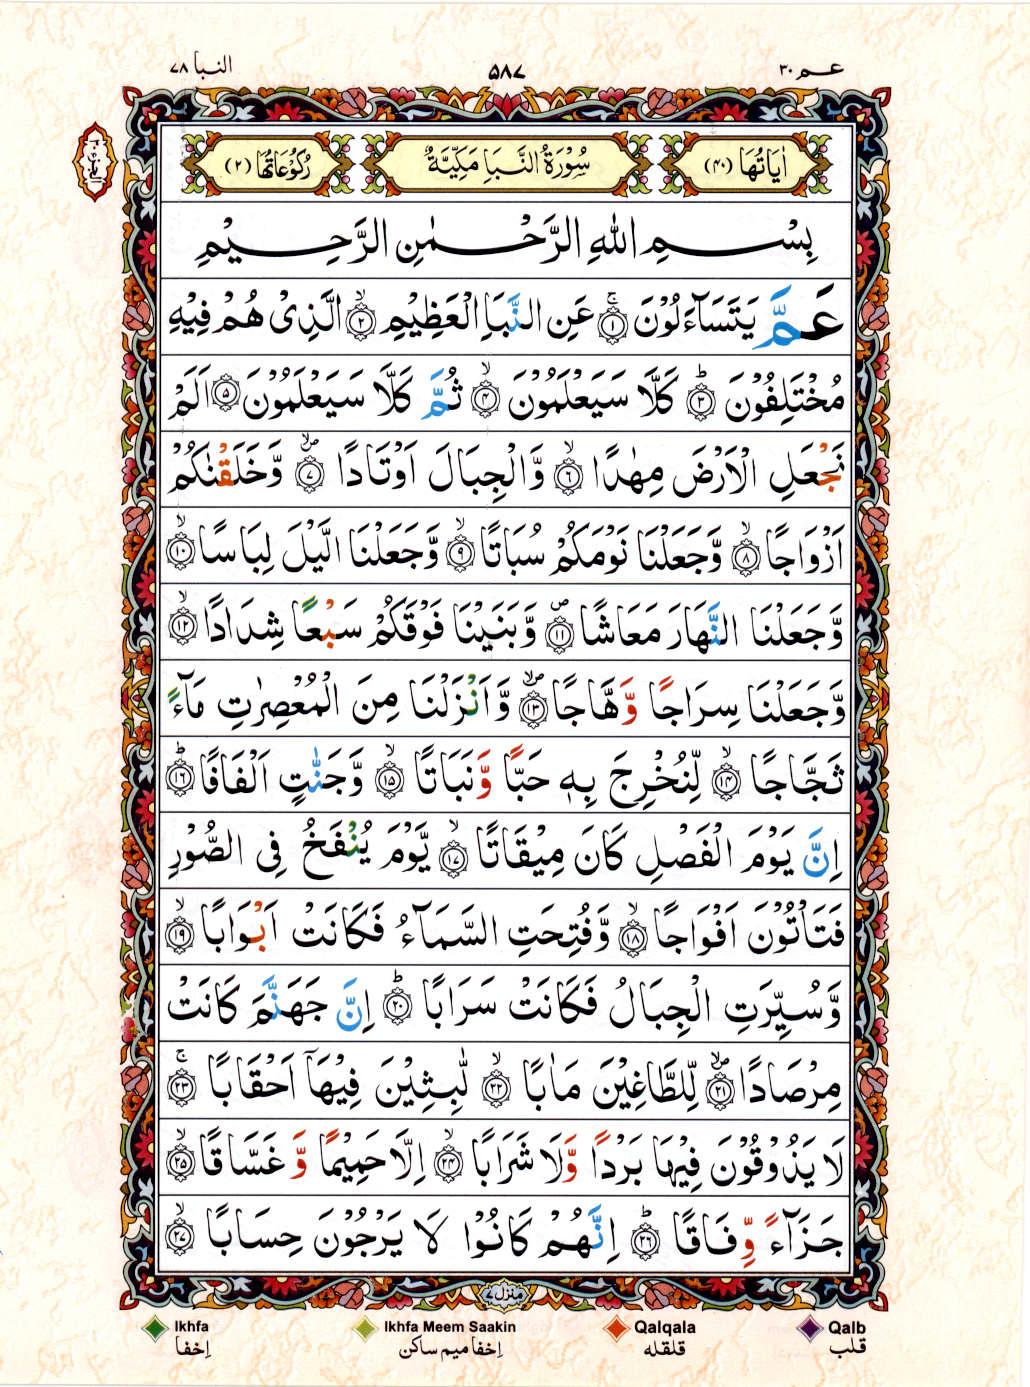 عـم ٣٠
٥٨٧
النبا ٧٨
اٰيَاتُهَا (٤٠)
سُوْرَةُ النَّبَاِ مَكِّيَّةٌ
رُكُوْعَاتُهَا (٢)
الجزء ٣٠
بِسْــمِ اللهِ الرَّحْـمٰنِ الرَّحِـيْمِ
عَـمَّ يَتَسَآءَلُوْنَ ۚ‏﴿١﴾ عَنِ النَّبَاِ الْعَظِيْمِ ۙ‏﴿٢﴾ الَّذِىْ هُمْ فِيْهِ
مُخْتَلِفُوْنَ ؕ‏﴿٣﴾ كَلَّا سَيَعْلَمُوْنَ ۙ‏﴿٤﴾ ثُمَّ كَلَّا سَيَعْلَمُوْنَ ﴿٥﴾ اَلَمْ
نَجْعَلِ الْاَرْضَ مِهٰدًا ۙ‏﴿٦﴾ وَّالْجِبَالَ اَوْتَادًا ۖ‏﴿٧﴾ وَّخَلَقْنٰكُمْ
اَزْوَاجًا ۙ‏﴿٨﴾ وَّجَعَلْنَا نَوْمَكُمْ سُبَاتًا ۙ‏﴿٩﴾ وَّجَعَلْنَا الَّيْلَ لِبَاسًا ۙ‏﴿١٠﴾
وَّجَعَلْنَا النَّهَارَ مَعَاشًا ﴿١١﴾ وَّبَنَيْنَا فَوْقَكُمْ سَبْعًا شِدَادًا ۙ‏﴿١٢﴾
وَّجَعَلْنَا سِرَاجًا وَّهَّاجًا ۖ‏﴿١٣﴾ وَّاَنْزَلْنَا مِنَ الْمُعْصِرٰتِ مَآءً
ثَجَّاجًا ۙ‏﴿١٤﴾ لِّنُخْرِجَ بِهٖ حَبًّا وَّنَبَاتًا ۙ‏﴿١٥﴾ وَّجَنّٰتٍ اَلْفَافًا ؕ‏﴿١٦﴾
اِنَّ يَوْمَ الْفَصْلِ كَانَ مِيْقَاتًا ۙ‏﴿١٧﴾ يَّوْمَ يُنْفَخُ فِى الصُّوْرِ
فَتَاْتُوْنَ اَفْوَاجًا ۙ‏﴿١٨﴾ وَّفُتِحَتِ السَّمَآءُ فَكَانَتْ اَبْوَابًا ۙ‏﴿١٩﴾
وَّسُيِّرَتِ الْجِبَالُ فَكَانَتْ سَرَابًا ؕ‏﴿٢٠﴾ اِنَّ جَهَنَّمَ كَانَتْ
مِرْصَادًا ۖ‏﴿٢١﴾ لِّلطَّاغِيْنَ مَاٰبًا ۙ‏﴿٢٢﴾ لّٰبِثِيْنَ فِيْهَآ اَحْقَابًا ۚ‏﴿٢٣﴾
لَا يَذُوْقُوْنَ فِيْهَا بَرْدًا وَّلَا شَرَابًا ۙ‏﴿٢٤﴾ اِلَّا حَمِيْمًا وَّغَسَّاقًا ۙ‏﴿٢٥﴾
جَزَآءً وِّفَاقًا ؕ‏﴿٢٦﴾ اِنَّهُمْ كَانُوْا لَا يَرْجُوْنَ حِسَابًا ۙ‏﴿٢٧﴾
منزل ٧
Ikhfa Ikhfa Meem Saakin Qalqala Qalb
اِخفا اِخفا میم ساکن قلقله قلب